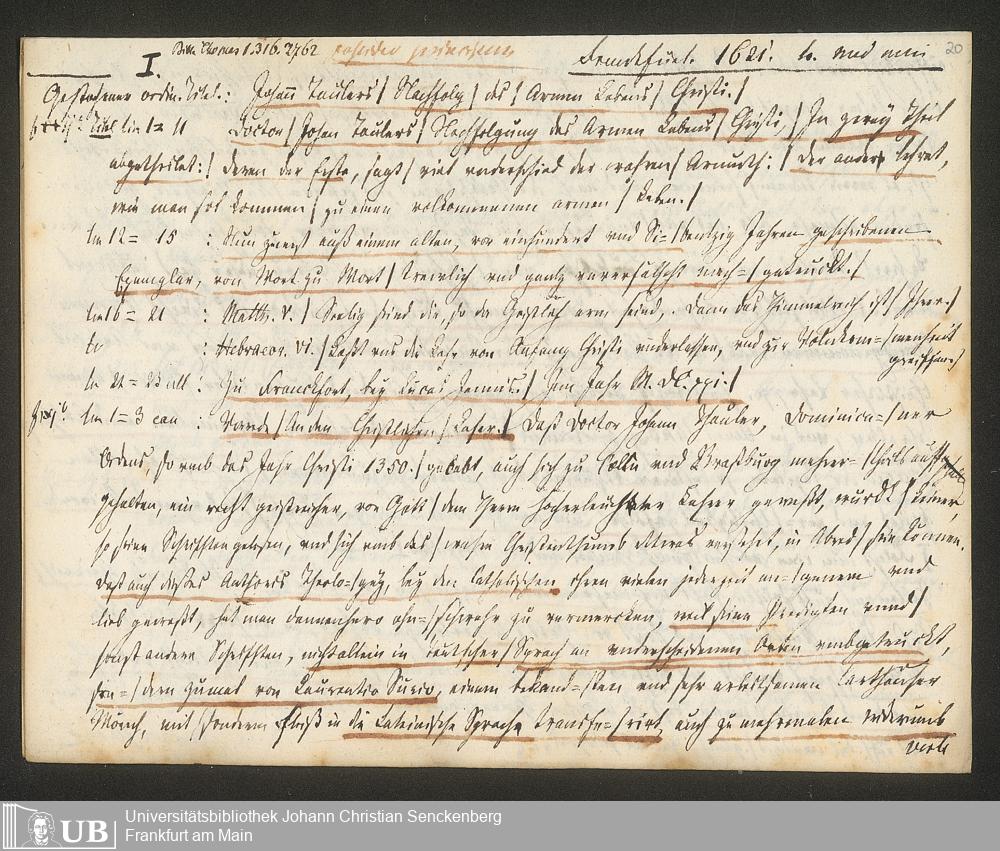 I. Bibl. Thomas 1.316.2762
Frankfurt. 1621. 20
Gestochener ordin. Titel.: Johan Taulers / Nachfolg / des / Armen Lebens / Christi. /
Titel lin 1= 11 Doctor / Johan Taulers / Nachfolgung des Armen Lebens / Christi, / In zwey Theil
abgetheilet: / deren der Erste, sagt / viel underschied der wahren / Armuth: / der ander lehret,
wie man sol kommen / zu einen volkommenen armen / Leben. /
lin 12= 15 : Nun zuerst auß einem alten, vor einhundert und Si= / bentzig Jahren geschriebenen
Exemplar, von Wort zu Wort / trewlich und gantz unverfälscht nach= / gedruckt. /
lin 16= 21 : Matth. V. / Seelig seind die, so da Geistlich arm seind, dann das Himmelreich ist / Ihrer. /
: Hebraeor. VI. / Laßt uns die Lehr von Anfang Christi underlassen, und zur Volnkom= / menheit
greiffen. /
lin 22= 23 ult : Zu Franckfort, bey Lucas Jennis: / Im Jahr M. DC. XXI. /
lin 1=3 : Vorrede / An den Christlichen / Leser. / Daß Doctor Johann Thauler, Dominica= / ner
Ordens, so umb das Jahr Christi 1350. / gelebt, auch sich zu Cölln und Straßburg mehrer= / theils auff
gehalten, ein recht geistreicher, von Gott / dem Herrn hocherleuchter Lehrer gewest, wurdt / keiner,
so seine Schrifften gelesen, und sich umb das / wahre Christenthumb etwas verstehet, in Abred / sein können.
Daß auch dieses Authoris Theolo= / gey, bey den Catholischen ohren vielen jederzeit an= / genem und
lieb gewest, hat man dannenhero ohn= / schwehr zu vermercken, weil seine Predigten unnd /
sonst andere Schrifften, nicht allein in teutscher / Sprach an underscheidenen Orten umbgetruckt,
son= / dern zumal von Laurentio Surio, einem bekand= / ten und sehr arbeitsamen Carthäuser
Mönch, mit / sonderm Fleiß in die Lateinische Sprache transfe= / rirt, auch zu mehrmalen widerumb
Universitätsbibliothek Johann Christian Senckenberg
UB Frankfurt am Main